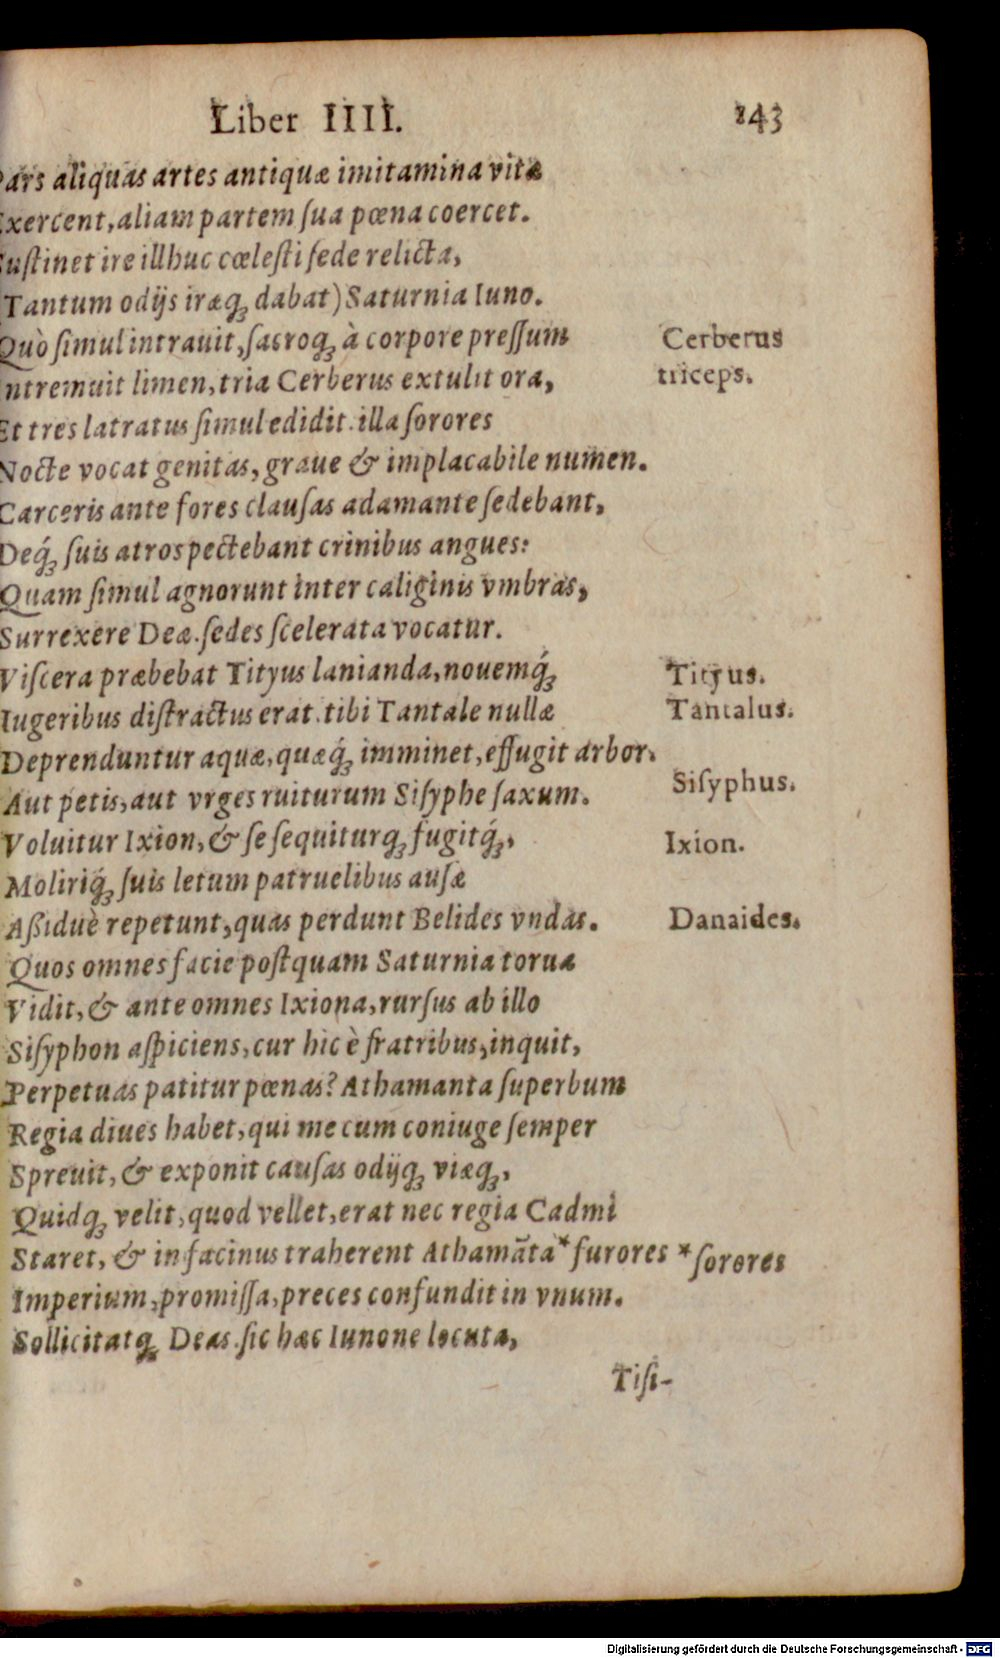 Liber IIII. 243
Pars aliquas artes antiquæ imitamina vitæ
Exercent, aliam partem ſua pœna coercet.
Suſtinet ire illhuc cœleſti ſede relicta,
(Tantum odijs iræq́ꝫ dabat) Saturnia Iuno.
Quò ſimul intrauit, ſacroqꝫ à corpore preſſum
Cerberus
Intremuit limen, tria Cerberus extulit ora,
triceps.
Et tres latratus ſimul edidit. illa ſorores
Nocte vocat genitas, graue & implacabile numen.
Carceris ante fores clauſas adamante ſedebant,
Deq́ꝫ ſuis atros pectebant crinibus angues:
Quam ſimul agnorunt inter caliginis vmbras,
Surrexere Deæ. ſedes ſcelerata vocatur.
Viſcera præbebat Tityus lanianda, nouemq́ꝫ
Tityus.
Iugeribus diſtractus erat. tibi Tantale nullæ
Tantalus.
Deprenduntur aquæ, quæq́ꝫ imminet, effugit arbor.
Aut petis, aut vrges ruiturum Siſyphe ſaxum.
Siſyphus.
Voluitur Ixion, & ſe ſequiturqꝫ fugitq́ꝫ,
Ixion.
Moliriq́ꝫ ſuis letum patruelibus auſæ
Aßiduè repetunt, quas perdunt Belides vndas.
Danaides.
Quos omnes facie poſtquam Saturnia torua
Vidit, & ante omnes Ixiona, rurſus ab illo
Siſyphon aſpiciens, cur hic è fratribus, inquit,
Perpetuas patitur pœnas? Athamanta ſuperbum
Regia diues habet, qui me cum coniuge ſemper
Spreuit, & exponit cauſas odijqꝫ viæqꝫ,
Quidqꝫ velit, quod vellet, erat nec regia Cadmi
Staret, & in facinus traherent Athamāta * furores * ſorores
Imperium, promiſſa, preces confundit in vnum.
Sollicitatqꝫ Deas. ſic hæc Iunone locuta,
Tiſi-
Digitalisierung gefördert durch die Deutsche Forschungsgemeinschaft - DFG